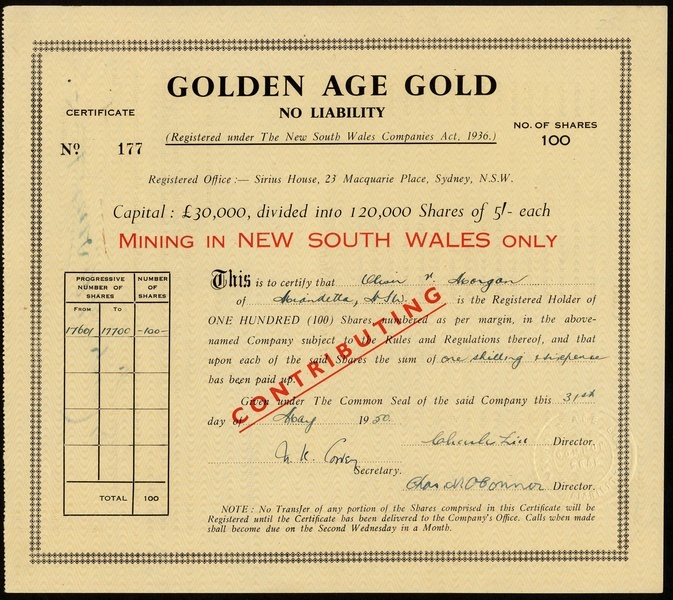 GOLDEN AGE GOLD
NO LIABILITY
(Registered under The New South Wales Companies Act, 1936.)
CERTIFICATE
Nº 177
NO. OF SHARES
100
Registered Office :— Sirius House, 23 Macquarie Place, Sydney, N.S.W.
Capital : £30,000, divided into 120,000 Shares of 5/- each
MINING IN NEW SOUTH WALES ONLY
PROGRESSIVE NUMBER OF SHARES
NUMBER OF SHARES
FROM TO
17601 17700 -100-
TOTAL 100
This is to certify that Oliver H. Morgan
of N.S.W. is the Registered Holder of
ONE HUNDRED (100) Shares, numbered as per margin, in the above-
named Company subject to the Rules and Regulations thereof, and that
upon each of the said Shares the sum of one shilling & sixpence
has been paid up.
CONTRIBUTING
Given under The Common Seal of the said Company this 31st
day of May 1950.
Director.
Secretary.
Chas. O'Connor Director.
NOTE : No Transfer of any portion of the Shares comprised in this Certificate will be
Registered until the Certificate has been delivered to the Company's Office. Calls when made
shall become due on the Second Wednesday in a Month.